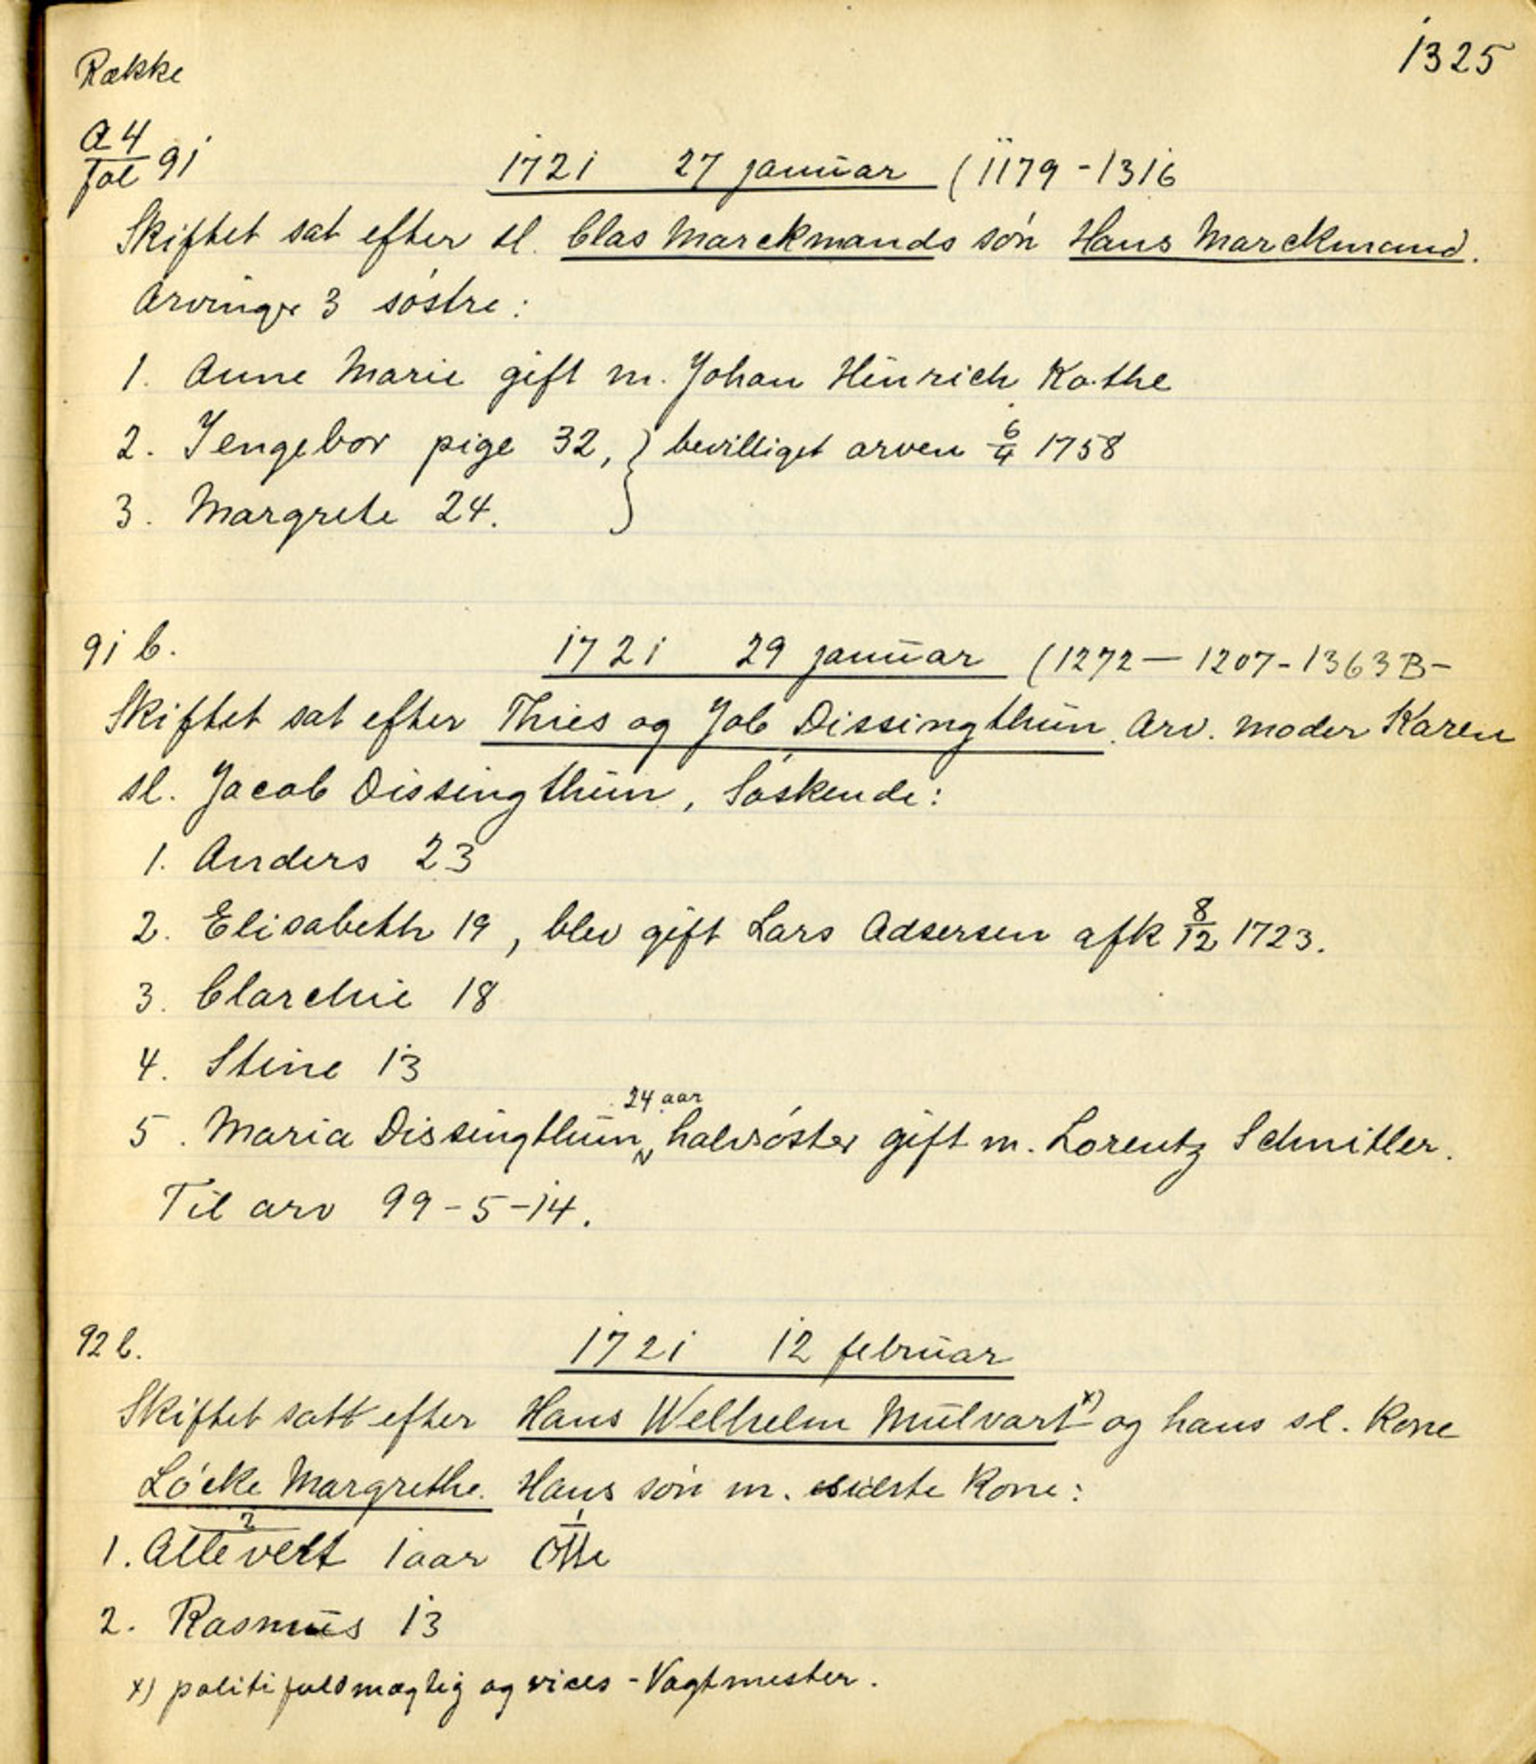 Række
1325
A 4
fol 91
1721 27 januar (1179 - 1316
Skiftet sat efter sl. Clas Marckmands søn Hans Marckmand.
Arvinger 3 søstre:
1. Anne Marie gift m. Johan Hinrich Kothe
2. Jengebor pige 32, } bevilliget arven 6/4 1758
3. Margrete 24.
91 b.
1721 29 januar (1272 — 1207 - 1363 B -
Skiftet sat efter Thies og Job Dissingthun. Arv. moder Karen
sl. Jacob Dissingthun, Søskende:
1. Anders 23
2. Elisabeth 19, blev gift Lars Adsersen afk 8/12 1723.
3. Clarchie 18
4. Stine 13
24 aar
5. Maria Dissingthun, halvsøster gift m. Lorentz Schnitler.
Til arv 99 - 5 - 14.
92 b.
1721 12 februar
Skiftet satt efter Hans Welhelm Mulvart x) og hans sl. Kone
Löcke Margrethe. Hans søn m. sidste Kone:
1. Attevelt 1 aar Otte
2. Rasmus 13
x) politifuldmægtig og vices - Vagtmester.